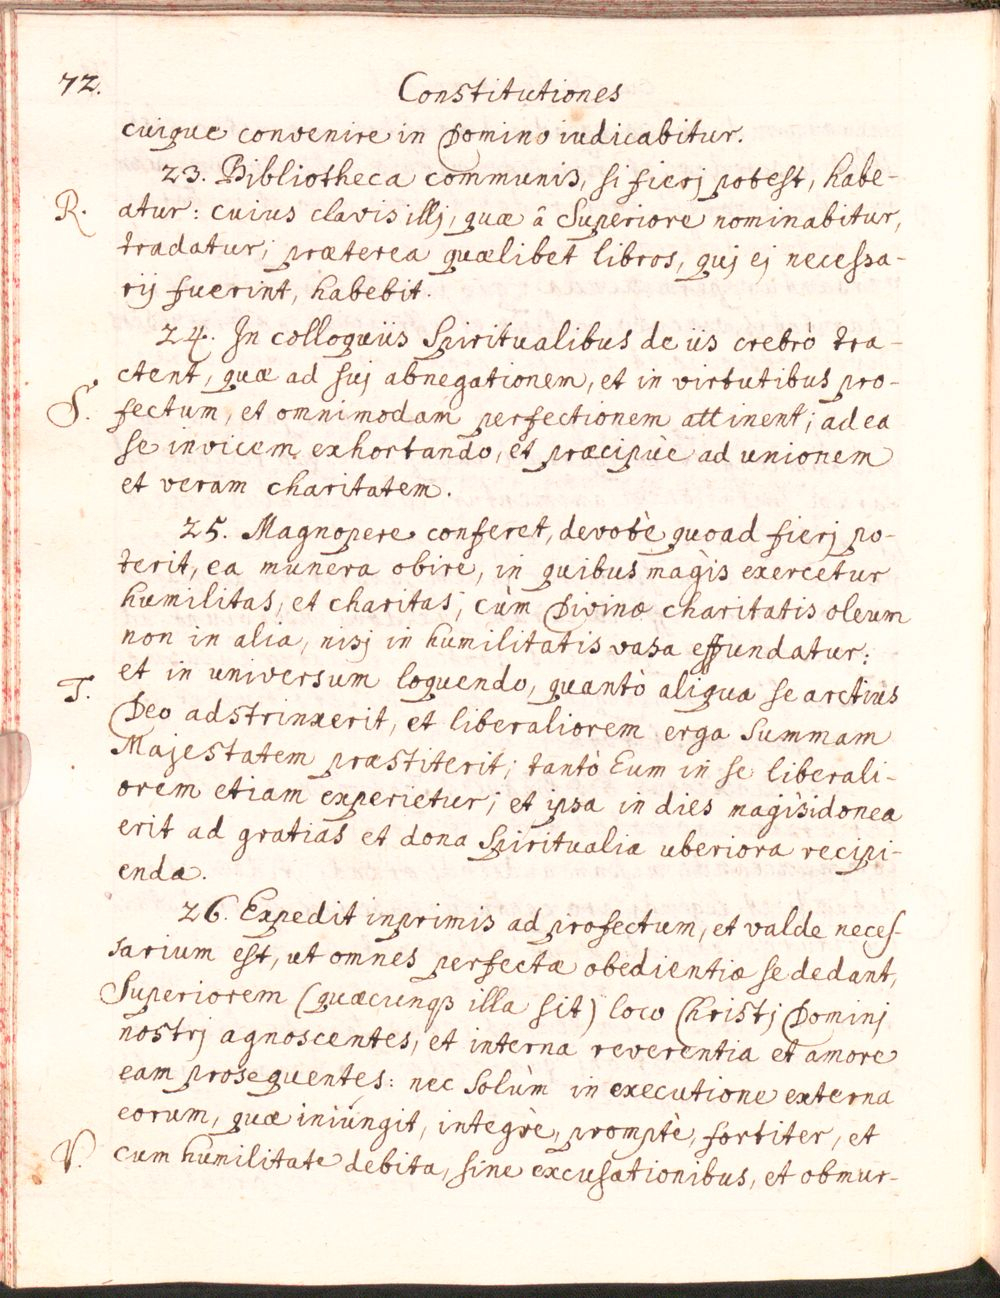 72.
Constitutiones
cuique convenire in Domino iudicabitur.
23. Bibliotheca communis, si fierj potest, habe-
R. atur: cuius clavis illj, quæ â Superiore nominabitur,
tradatur; præterea quælibet libros, quj ej necessa-
rij fuerint, habebit.
24. In colloquiis Spiritualibus de iis crebrò tra-
ctent, quæ ad suj abnegationem, et in virtutibus pro-
S. fectum, et omnimodam perfectionem attinent; ad ea
se invicem exhortando, et præcipuè ad unionem
et veram charitatem.
25. Magnopere conferet, devotè quoad fierj po-
terit, ea munera obire, in quibus magìs exercetur
humilitas, et charitas; cùm Divinæ charitatis oleum
non in alia, nisj in humilitatis vasa effundatur:
et in universum loquendo, quantò aliqua se arctiùs
T. Deo adstrinxerit, et liberaliorem erga Summam
Majestatem præstiterit; tantò Eum in se liberali-
orem etiam experietur; et ipsa in dies magìs idonea
erit ad gratias et dona Spiritualia uberiora recipi-
enda.
26. Expedit inprimis ad profectum, et valde neces-
sarium est, ut omnes perfectæ obedientiæ se dedant,
Superiorem (quæcunqꝫ illa sit) loco Christj Dominj
nostrj agnoscentes, et interna reverentia et amore
eam prosequentes: nec Solùm in executione externa
eorum, quæ iniungit, integrè, promptè, fortiter, et
V. cum humilitate debita, sine excusationibus, et obmur-